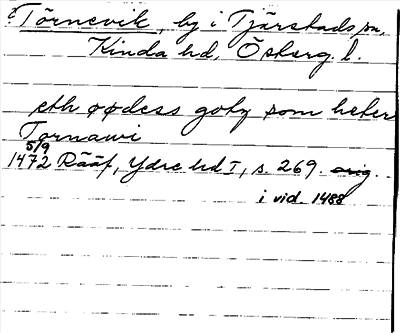 Törnevik, by i Tjärstads sn,
Kinda hd, Österg. l.
eth øødess gotz som heter
Tornawi
5/9
1472 Rääf, Ydre hd I, s. 269. orig.
i vid. 1488